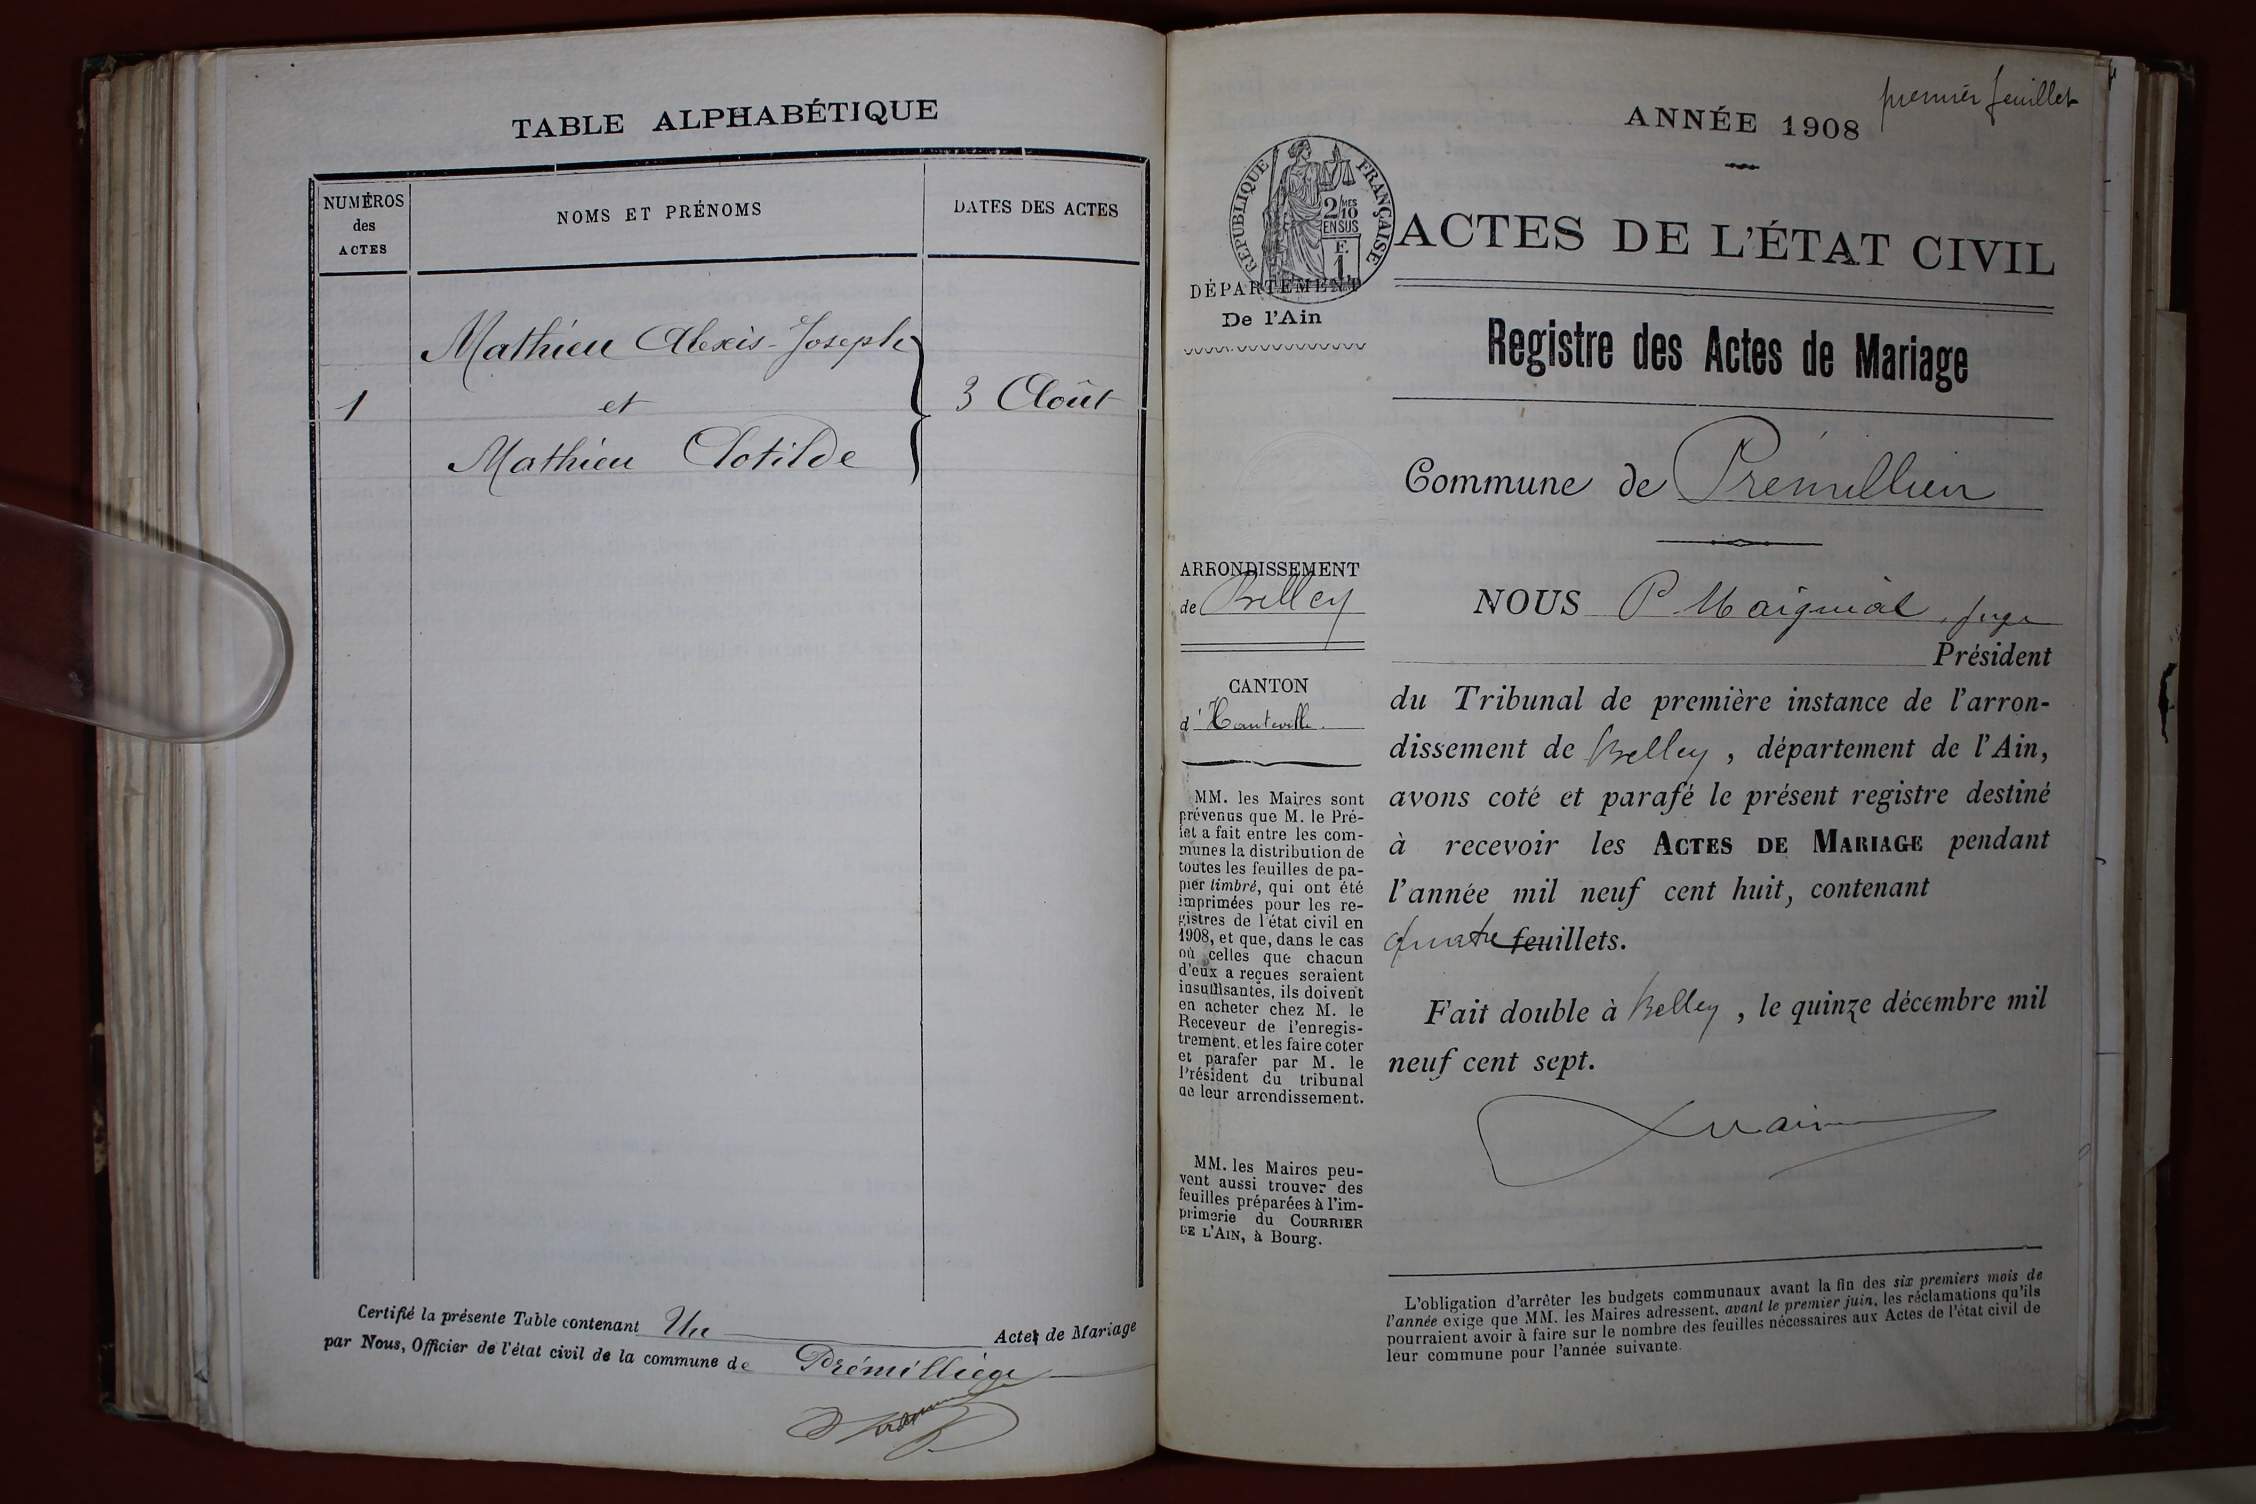 TABLE ALPHABÉTIQUE
NUMÉROS
des
ACTES
NOMS ET PRÉNOMS
DATES DES ACTES
Mathieu Alexis-Joseph
1
et
3 Août
Mathieu Clotilde
Certifié la présente Table contenant Un Acte de Mariage
par Nous, Officier de l'état civil de la commune de Prémilliéu
premier feuillet
ANNÉE 1908
RÉPUBLIQUE FRANÇAISE
2/10 MES
EN SUS
F.
1
ACTES DE L'ÉTAT CIVIL
DÉPARTEMENT
De l'Ain
Registre des Actes de Mariage
Commune de Prémillieu
ARRONDISSEMENT
de Belley
CANTON
d'Hauteville.
MM. les Maires sont
prévenus que M. le Pré-
fet a fait entre les com-
munes la distribution de
toutes les feuilles de pa-
pier timbré, qui ont été
imprimées pour les re-
gistres de l'état civil en
1908, et que, dans le cas
où celles que chacun
d'eux a reçues seraient
insuffisantes, ils doivent
en acheter chez M. le
Receveur de l'enregis-
trement, et les faire coter
et parafer par M. le
Président du tribunal
de leur arrondissement.
MM. les Maires peu-
vent aussi trouver des
feuilles préparées à l'im-
primerie du COURRIER
DE L'AIN, à Bourg.
NOUS P. Maignial, juge
Président
du Tribunal de première instance de l'arron-
dissement de Belley, département de l'Ain,
avons coté et parafé le présent registre destiné
à recevoir les ACTES DE MARIAGE pendant
l'année mil neuf cent huit, contenant
quatre feuillets.
Fait double à Belley, le quinze décembre mil
neuf cent sept.
L'obligation d'arrêter les budgets communaux avant la fin des six premiers mois de
l'année exige que MM. les Maires adressent, avant le premier juin, les réclamations qu'ils
pourraient avoir à faire sur le nombre des feuilles nécessaires aux Actes de l'état civil de
leur commune pour l'année suivante.